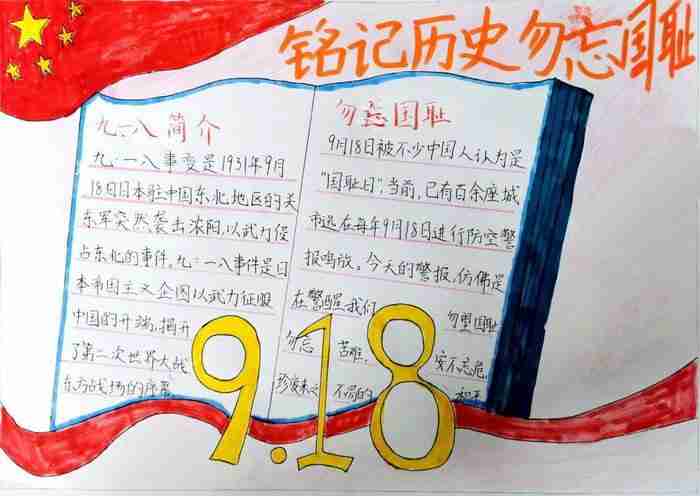 铭记历史勿忘国耻
九·一八简介
九·一八事变是1931年9月
18日日本驻中国东北地区的关
东军突然袭击沈阳,以武力侵
占东北的事件。九·一八事件是日
本帝国主义企图以武力征服
中国的开端,揭开
了第二次世界大战
东方战场的序幕
勿忘国耻
9月18日被不少中国人认为是
"国耻日"。当前,已有百余座城
市选在每年9月18日进行防空警
报鸣放。今天的警报,仿佛是
在警醒我们 勿忘国耻
勿忘 苦难, 安不忘危,
珍惜来之 不易的 和平
9.18